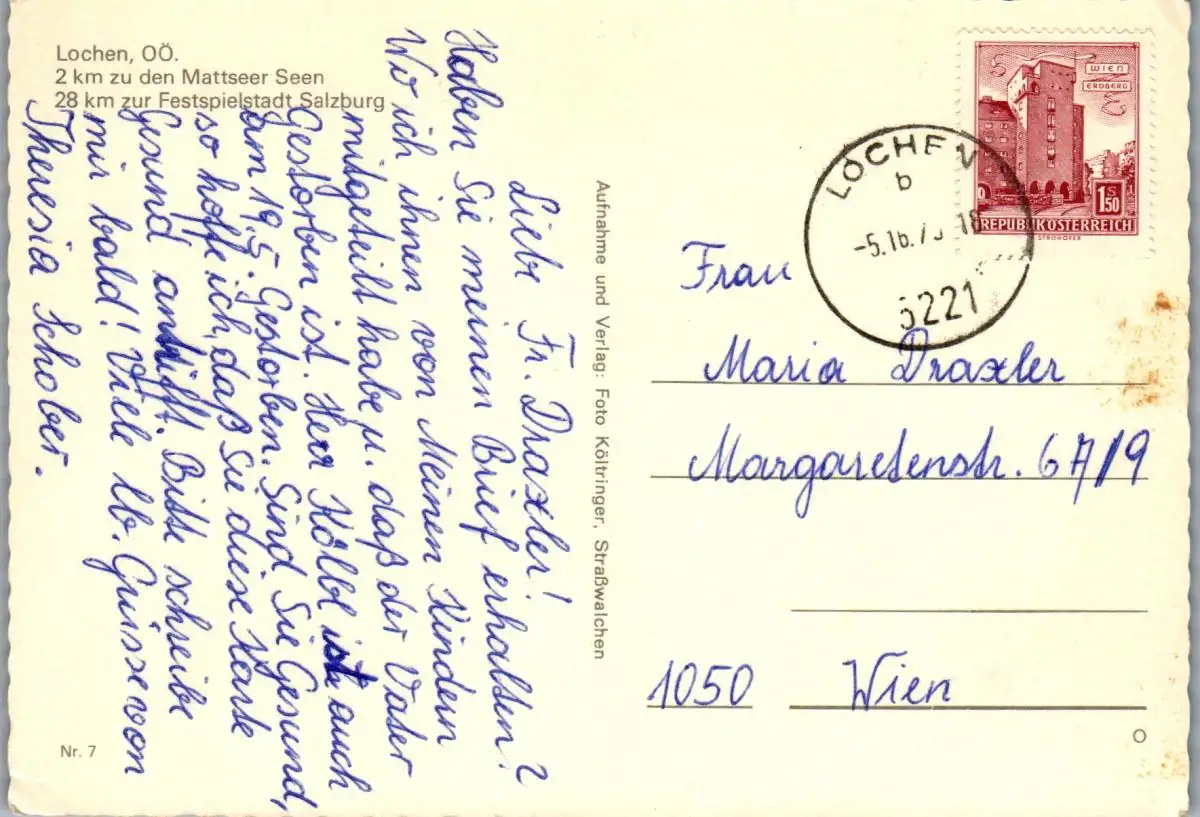 Lochen, OÖ.
2 km zu den Mattseer Seen
28 km zur Festspielstadt Salzburg
Liebe Fr. Draxler!
Haben Sie meinen Brief erhalten?
Wo ich ihnen von Meinen Kindern
mitgeteilt habe u. daß der Vater
Gestorben ist. Herr Kölbl ist auch
am 19.5. Gestorben. Sind Sie Gesund,
so hoffe ich, daß Sie diese Karte
Gesund antrifft. Bitte schreibe
mir bald! Viele lb. Grüsse von
Theresia Schober.
Nr. 7
Aufnahme und Verlag: Foto Költringer, Straßwalchen
WIEN
ERDBERG
1 S 50
REPUBLIK ÖSTERREICH
STROHOFER
LOCHEN
b
5221
Frau
Maria Draxler
Margaretenstr. 67/19
1050 Wien
O